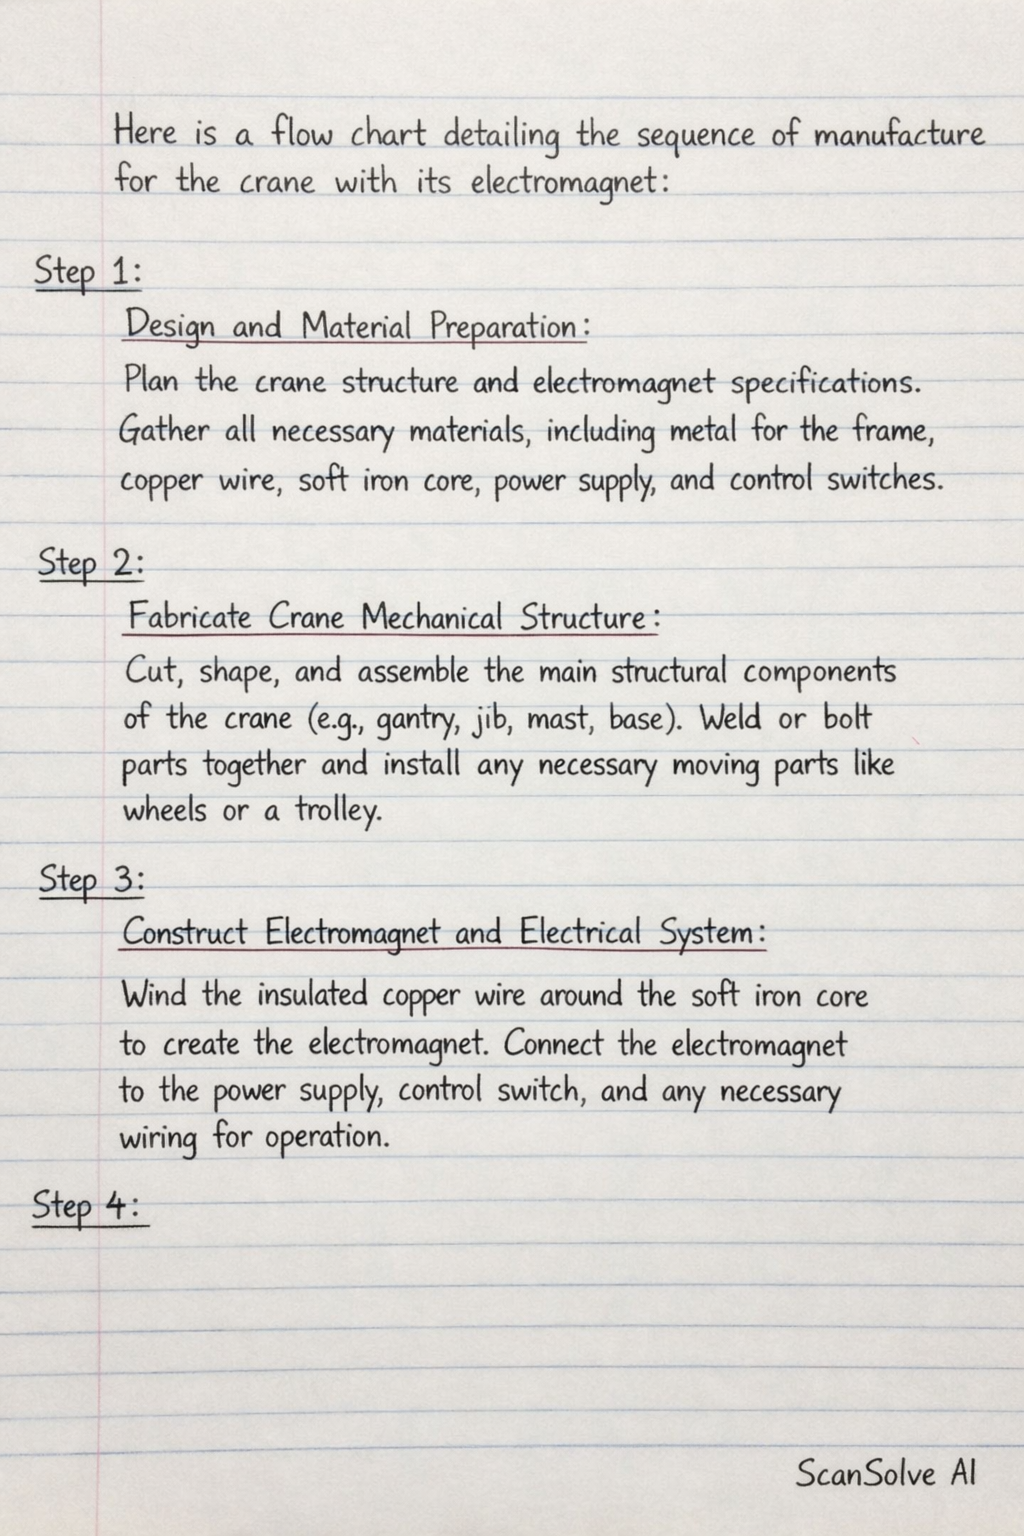 Here is a flow chart detailing the sequence of manufacture
for the crane with its electromagnet:
Step 1:
Design and Material Preparation:
Plan the crane structure and electromagnet specifications.
Gather all necessary materials, including metal for the frame,
copper wire, soft iron core, power supply, and control switches.
Step 2:
Fabricate Crane Mechanical Structure:
Cut, shape, and assemble the main structural components
of the crane (e.g., gantry, jib, mast, base). Weld or bolt
parts together and install any necessary moving parts like
wheels or a trolley.
Step 3:
Construct Electromagnet and Electrical System:
Wind the insulated copper wire around the soft iron core
to create the electromagnet. Connect the electromagnet
to the power supply, control switch, and any necessary
wiring for operation.
Step 4:
ScanSolve AI